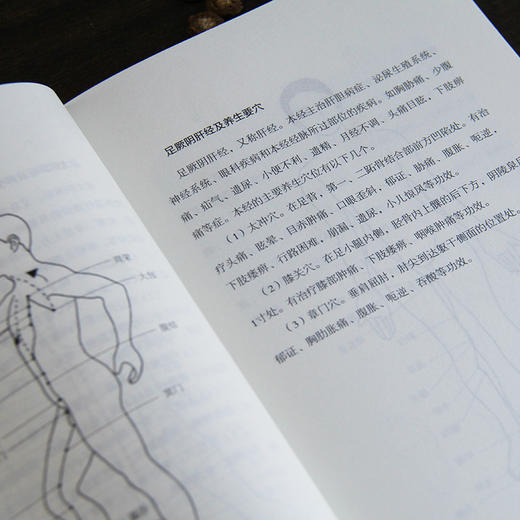 足厥阴肝经及养生要穴
足厥阴肝经，又称肝经。本经主治肝胆病症、泌尿生殖系统、
神经系统、眼科疾病和本经经脉所过部位的疾病。如胸胁痛、少腹
痛、疝气、遗尿、小便不利、遗精、月经不调、头痛目眩，下肢痹
痛等症。本经的主要养生穴位有以下几个。
（1）太冲穴。在足背，第一、二跖骨结合部前方凹陷处。有治
疗头痛、眩晕、目赤肿痛、口眼歪斜、郁证、胁痛、腹胀、呃逆，
下肢痿痹、行路困难，崩漏，遗尿，小儿惊风等功效。
（2）膝关穴。在足小腿内侧，胫骨内上髁的后下方，阴陵泉后
1寸处。有治疗膝部肿痛、下肢痿痹、咽喉肿痛等功效。
（3）章门穴。垂肩屈肘，肘尖到达躯干侧面的位置处。
郁证、胸肋胀痛、腹胀、呃逆、吞酸等功效。
周荣
大包
腹结
冲门